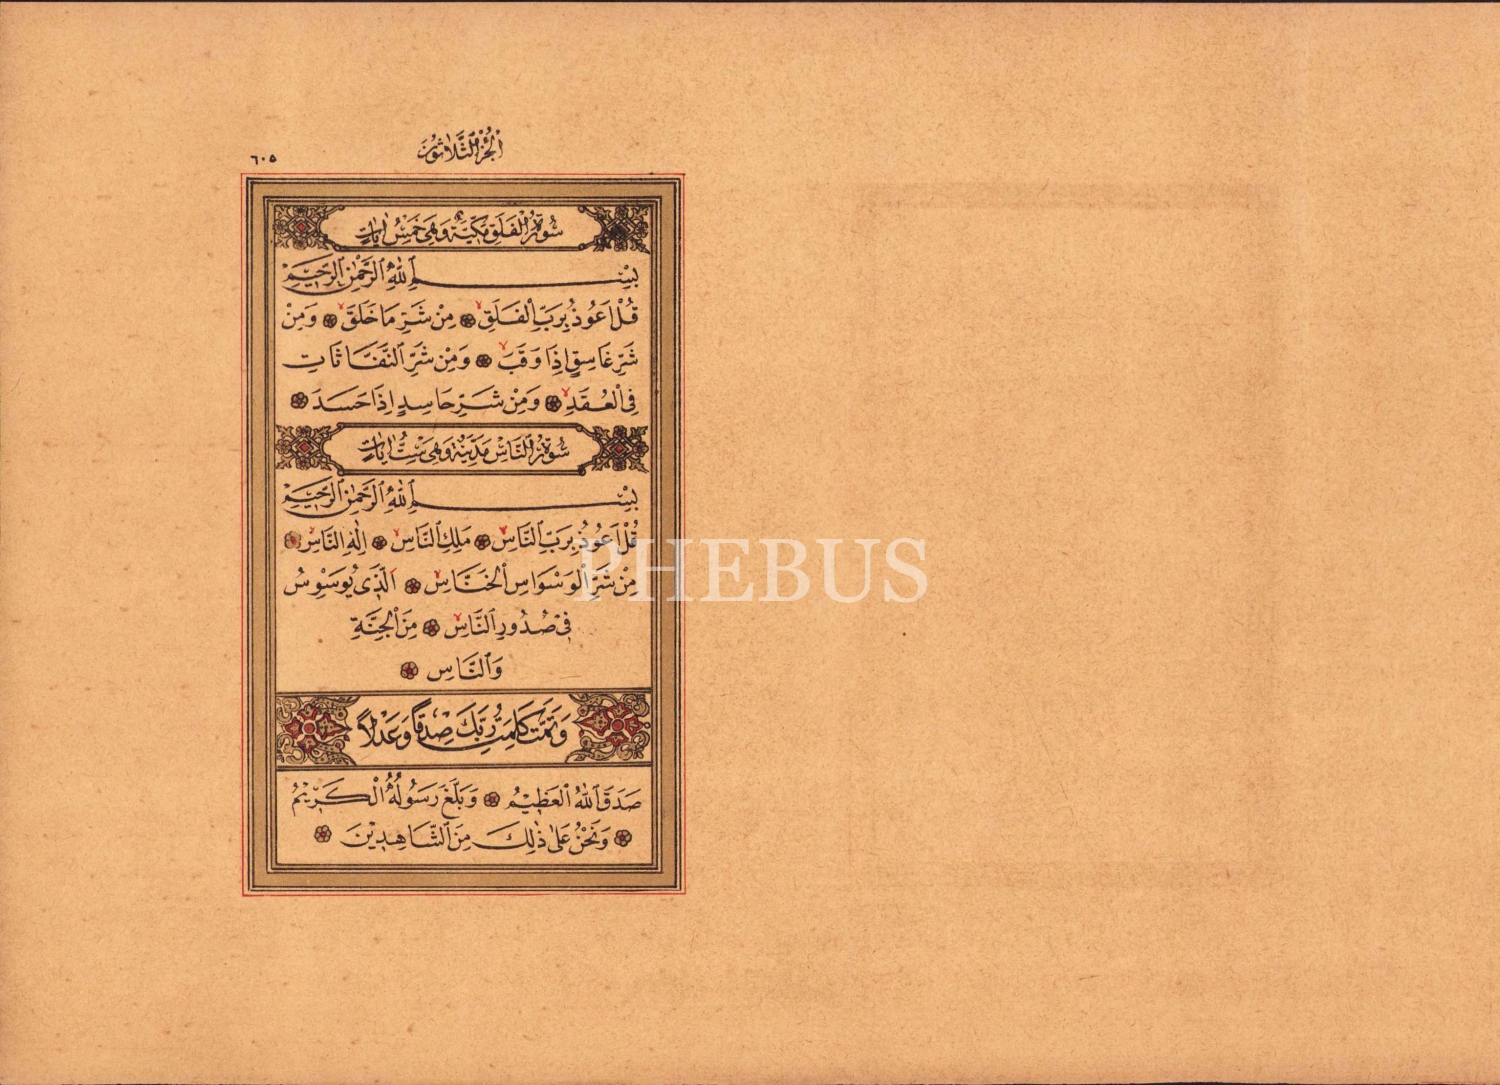 الجزء الثلاثون
٦٠٥
سُورَةُ الْفَلَقِ مَكِّيَّةٌ وَهِيَ خَمْسُ اٰيَاتٍ
بِسْمِ اللّٰهِ الرَّحْمٰنِ الرَّحِيمِ
قُلْ اَعُوذُ بِرَبِّ الْفَلَقِ ۙ مِنْ شَرِّ مَا خَلَقَ ۙ وَمِنْ
شَرِّ غَاسِقٍ اِذَا وَقَبَ ۙ وَمِنْ شَرِّ النَّفَّاثَاتِ
فِي الْعُقَدِ ۙ وَمِنْ شَرِّ حَاسِدٍ اِذَا حَسَدَ
سُورَةُ النَّاسِ مَدَنِيَّةٌ وَهِيَ سِتُّ اٰيَاتٍ
بِسْمِ اللّٰهِ الرَّحْمٰنِ الرَّحِيمِ
قُلْ اَعُوذُ بِرَبِّ النَّاسِ ۙ مَلِكِ النَّاسِ ۙ اِلٰهِ النَّاسِ ۙ
مِنْ شَرِّ الْوَسْوَاسِ الْخَنَّاسِ ۙ اَلَّذِي يُوَسْوِسُ
فِي صُدُورِ النَّاسِ ۙ مِنَ الْجِنَّةِ
وَالنَّاسِ
وَتَمَّتْ كَلِمَتُ رَبِّكَ صِدْقًا وَعَدْلًا
صَدَقَ اللّٰهُ الْعَظِيمُ وَبَلَّغَ رَسُولُهُ الْكَرِيمُ
وَنَحْنُ عَلٰى ذٰلِكَ مِنَ الشَّاهِدِينَ
PHEBUS